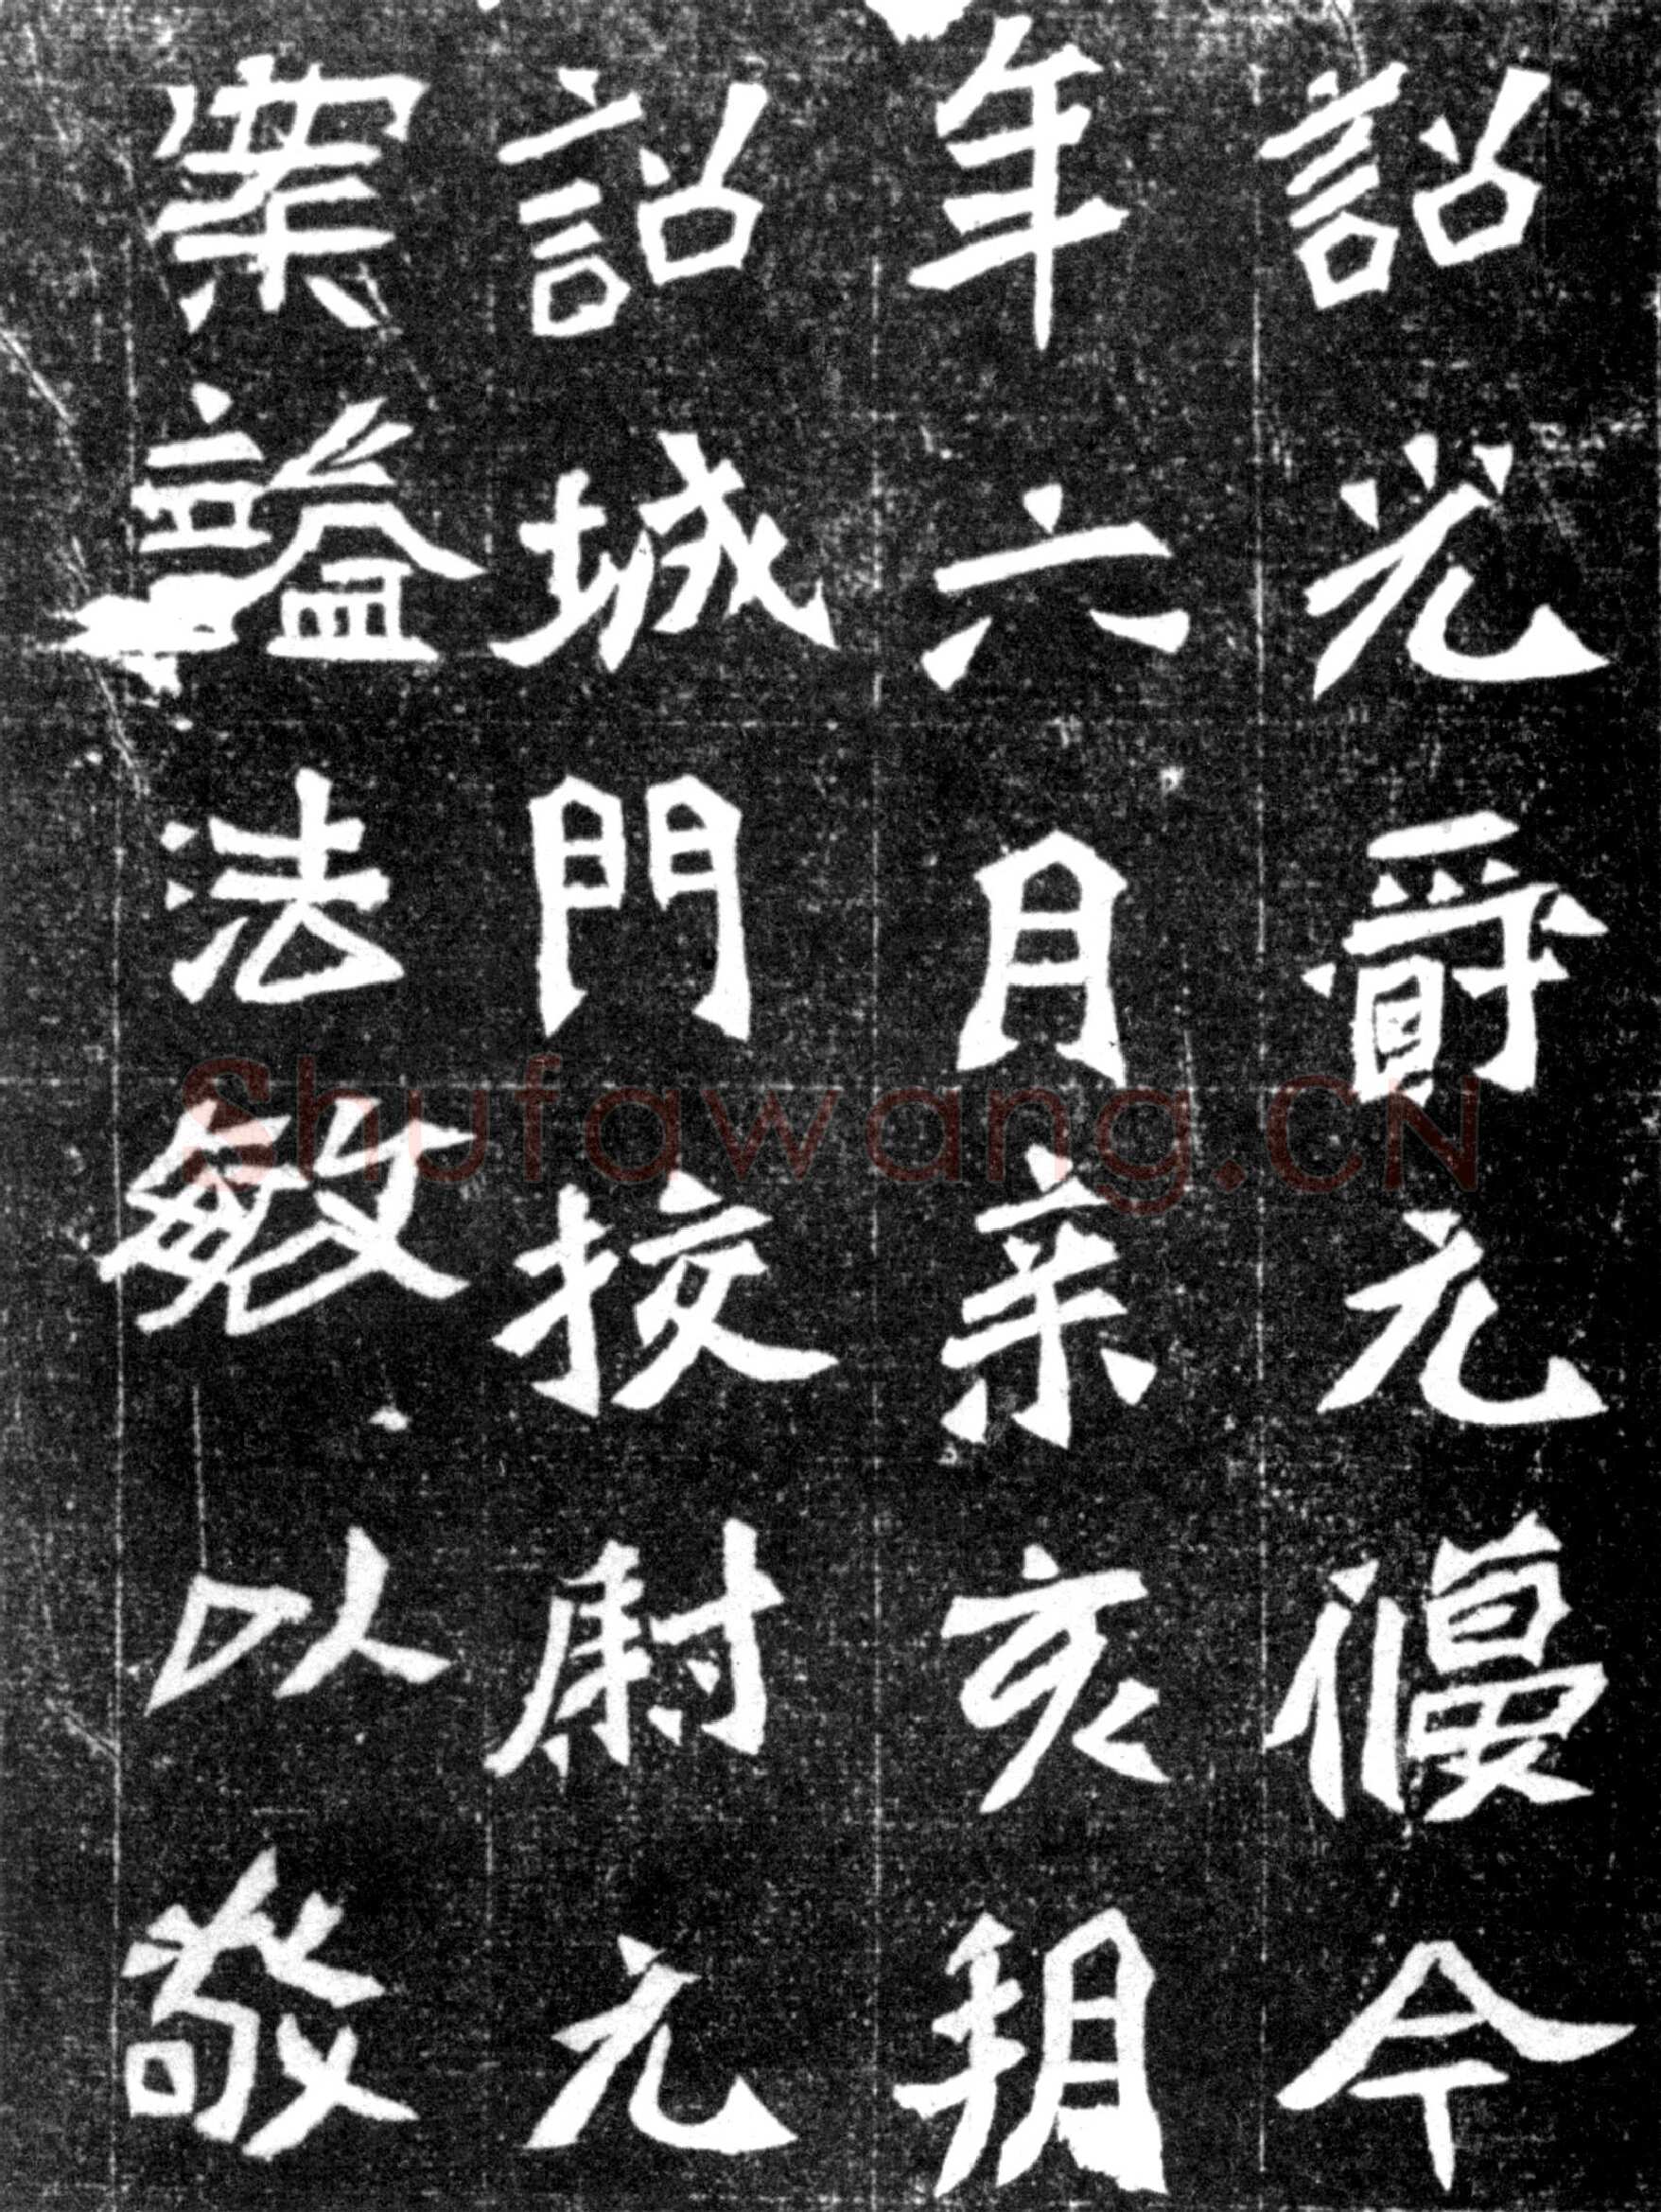 詔光爵元偃今
年六月辛亥朔
詔城門挍尉元
案謚法敏以敬
Shufawang.CN